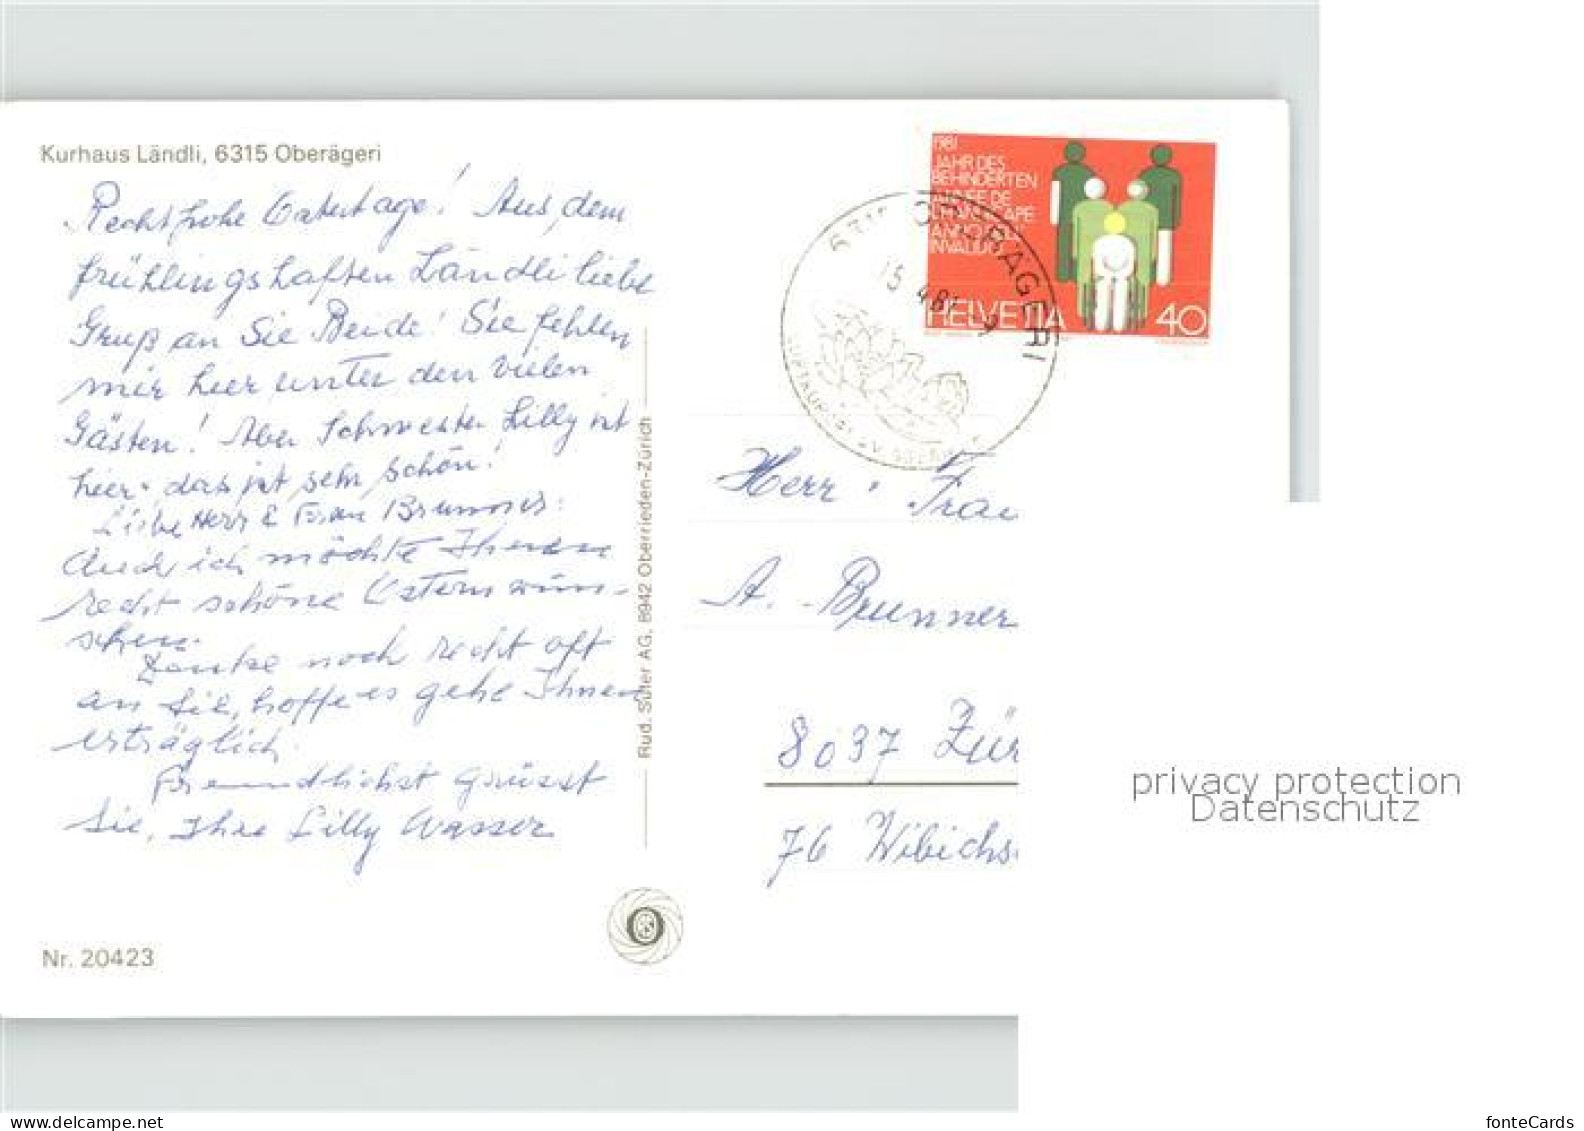 Kurhaus Ländli, 6315 Oberägeri
Recht frohe Ostertage! Aus dem
frühlingshaften Ländli liebe
Gruß an Sie Beide! Sie fehlen
mir hier unter den vielen
Gästen! Aber Schwester Lilly ist
hier. das ist sehr schön!
Liebe Herr & Frau Brunner:
Auch ich möchte Ihnen
recht schöne Ostern wün-
schen.
Denke noch recht oft
an Sie, hoffe es gehe Ihnen
erträglich.
Freundlichst grüsst
Sie, Ihre Lilly Wasser
Nr. 20423
Rud. Suter AG, 8942 Oberrieden-Zürich
1981
JAHR DES
BEHINDERTEN
ANNÉE DE
HANDICAPÉ
ANNO
INVALIDO
HELVETIA 40
6315 OBERÄGERI
15.4.81-9
LUFTKURORT
Herr Frau
A. Brunner
8037 Zür
76 Wibichs
privacy protection
Datenschutz
www.delcampe.net
fonteCards